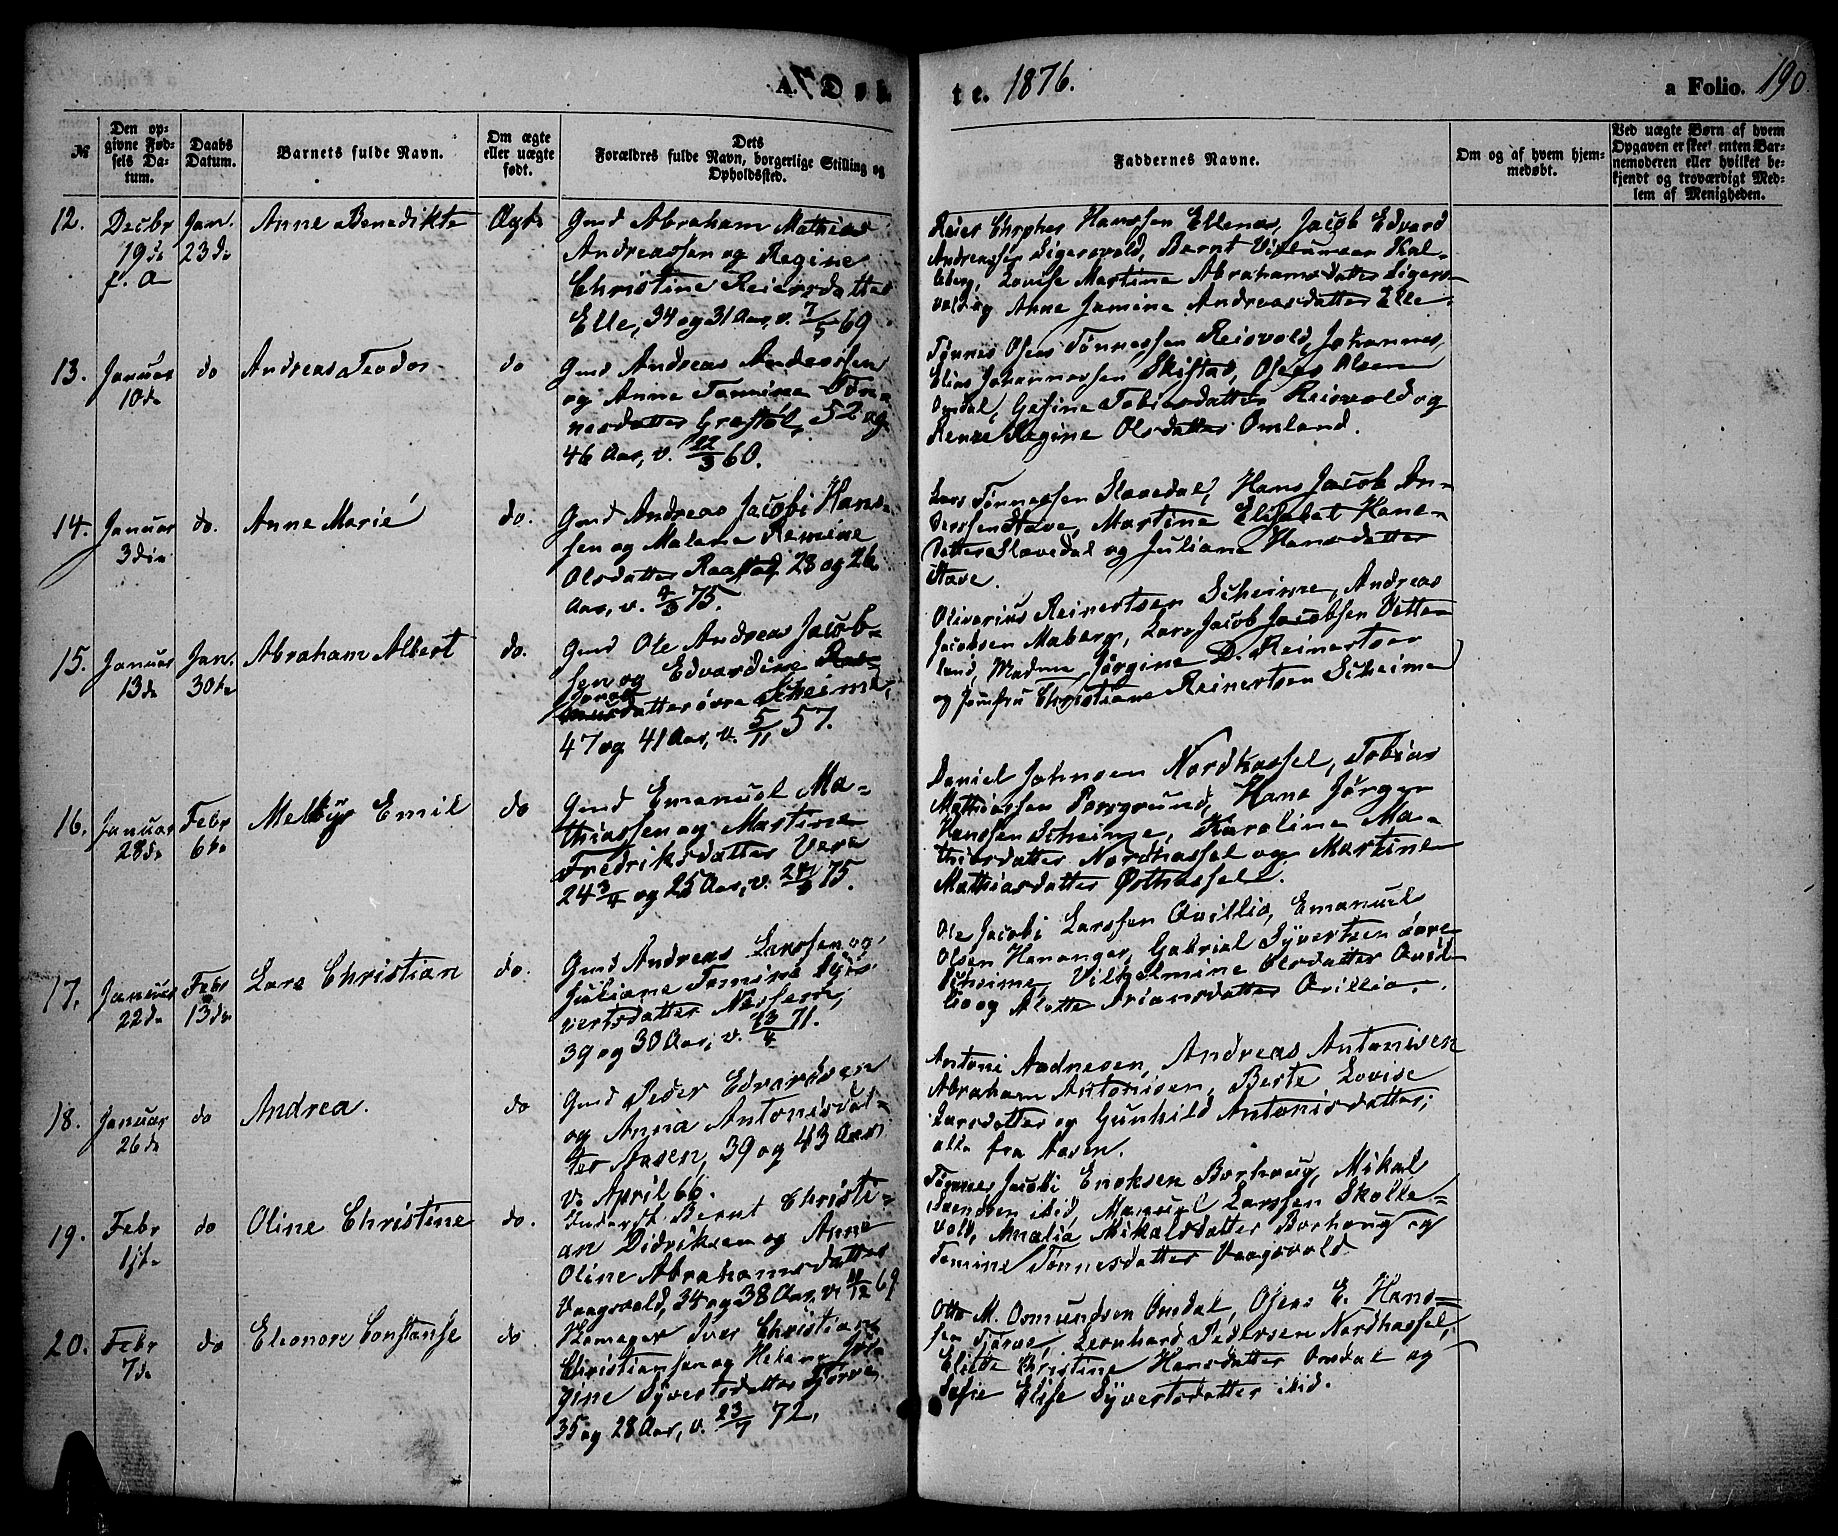 A. Døb
te. 1876.
a Folio. 190
№
Den op-
givne Fød-
sels Da-
tum.
Daabs
Datum.
Barnets fulde Navn.
Om ægte
eller uægte
født.
Dets
Forældres fulde Navn, borgerlige Stilling og
Opholdssted.
Faddernes Navne.
Om og af hvem hjem-
medøbt.
Ved uægte Børn af hvem
Opgaven er skeet, enten Bar-
nemoderen eller hvilket be-
kjendt og troværdigt Med-
lem af Menigheden.
12. Decbr Jan. Anne Benedikte Ægte
19de 23de
f. A
Gmd Abraham Mathias
Andreassen og Regine
Christine Reiersdatter
Elle, 34 og 31 Aar, v. 7/5 69
Reier Chrpher Hanssen Ellenes, Jacob Edvard
Andreassen Sigersvold, Bernt Kal-
leberg, Lovise Martine Abrahamsdatter Sigers-
vold og Anne Jamine Andreasdatter Elle
13. Januar do Andreas Teodor do
10de
Gmd Andreas Anderssen
og Anne Tomine Tøn-
nesdatter Græstøl, 52 og
46 Aar, v. 22/3 60.
Tønnes Oseas Tønnessen Reisvold, Johannes
Elias Johannessen Skistad, Oseas Olsen
Omdal, Gesine Tobiasdatter Reisvold og
Regine Olsdatter Omland.
14. Januar do. Anne Marie do.
3die
Gmd Andreas Jacobi Hans-
sen og Malene Reimine
Olsdatter Raastad, 28 og 26
Aar, v. 4/3 75.
Lars Tønnessen Slævedal, Hans Jacob An-
derssen Stave, Martine Elisabet Hans-
datter Slævedal og Juliane Hansdatter
Stave.
15. Januar Jan. Abraham Albert do.
13de 30te
Gmd Ole Andreas Jacob-
sen og Edvardine
datter øvre Scheime,
47 og 41 Aar, v. 5/11 57.
Olivarius Reinertsen Scheime, Andreas
Jacobsen Maberg, Lars Jacob Jacobsen Vette-
land, Madme Jørgine D. Reinertsen
og Jomfru Christiane Reinertsen Scheime
16. Januar Febr Emil do
28de 6te
Gmd Emanuel Ma-
thiassen og Martine
Fredriksdatter Vere
24 3/4 og 25 Aar, v. 75.
Daniel Johnsen Nordhassel, Tobias
Mathiassen Porsgrund, Hans Jørgen
Hanssen Scheime, Karoline Ma-
thiasdatter Nordhassel og Martine
Mathiasdatter Østhassel.
17. Januar Febr Lars Christian do.
22de 13de
Gmd Andreas Larssen og
Juliane Tomine Syv-
vertsdatter
39 og 30 Aar, v. 23/4 71.
Ole Jacobi Larssen Qvillio, Emanuel
Olsen Hananger, Gabriel Syvertsen øvre
Scheime, Vilhelmine Olsdatter Qvil-
lio og Alette Qvillio.
18. Januar do Andrea. do
26de
Gmd Peder Edvardsen
og Anna Antonisdat-
ter Aasen, 39 og 43 Aar
v. April 66.
Antoni Aadnesen, Andreas Antonisen
Abraham Antonisen, Berte Lovise
Larsdatter og Gunhild Antonisdatter;
alle fra Aasen.
19. Febr do Oline Christine do.
1ste
Inderst Bernt Christi-
an Didriksen og Anne
Oline Abrahamsdatter
Vaagsvold, 34 og 38 Aar, v. 69
Tønnes Jacobi Enoksen Borhaug, Mikal
Svendsen ibid, Manuel Larssen Skolle-
vold, Amalia Mikalsdatter Borhaug og
Tomine Tønnesdatter Vaagsvold
20. Febr do Eleonore Constanse do
7de
Iver Christian
Christiansen og Helene Jør-
gine Syvertsdatter Tjørve
35 og 28 Aar, v. 23/7 72,
Otto M. Osmundsen Omdal, Oseas E. Hans-
sen Tjørve, Leonhard Pedersen Nordhassel,
Elieto Christine Hansdatter Omdal og
Sofie Elise Syvertsdatter ibid.